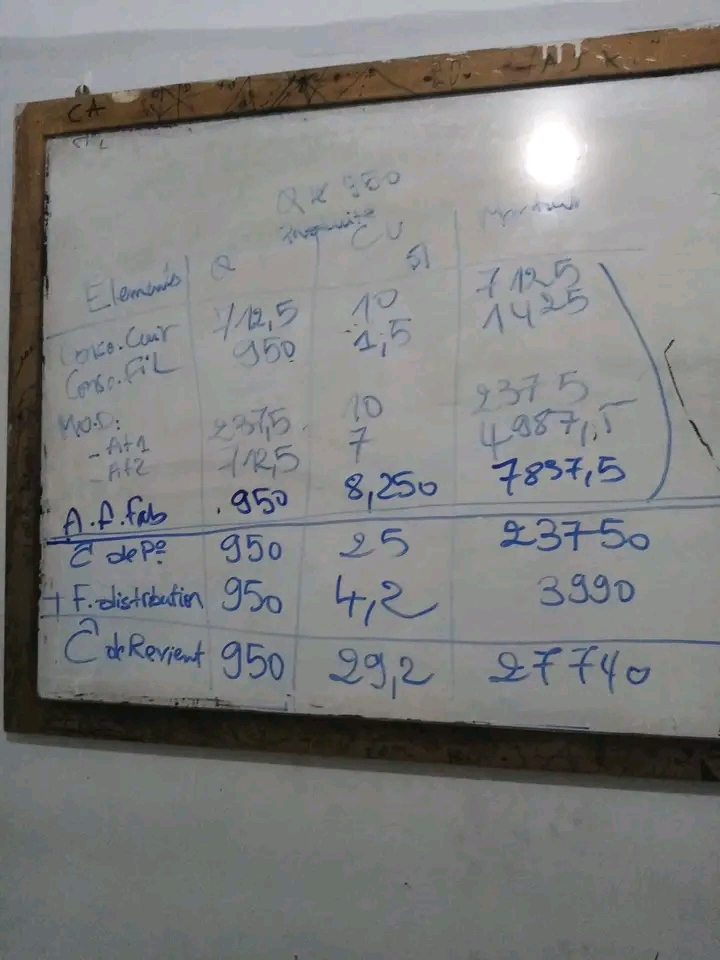 CA
Q x 950
Elements Q CU Montant
Conso. Cuir 712,5 10 7125
Conso. FiL 950 1,5 1425
M.O.D:
- At1 237,5 10 2375
- At2 712,5 7 4987,5
A.f.fab 950 8,250 7837,5
C de Pº 950 25 23750
+ F. distribution 950 4,2 3990
C de Revient 950 29,2 27740